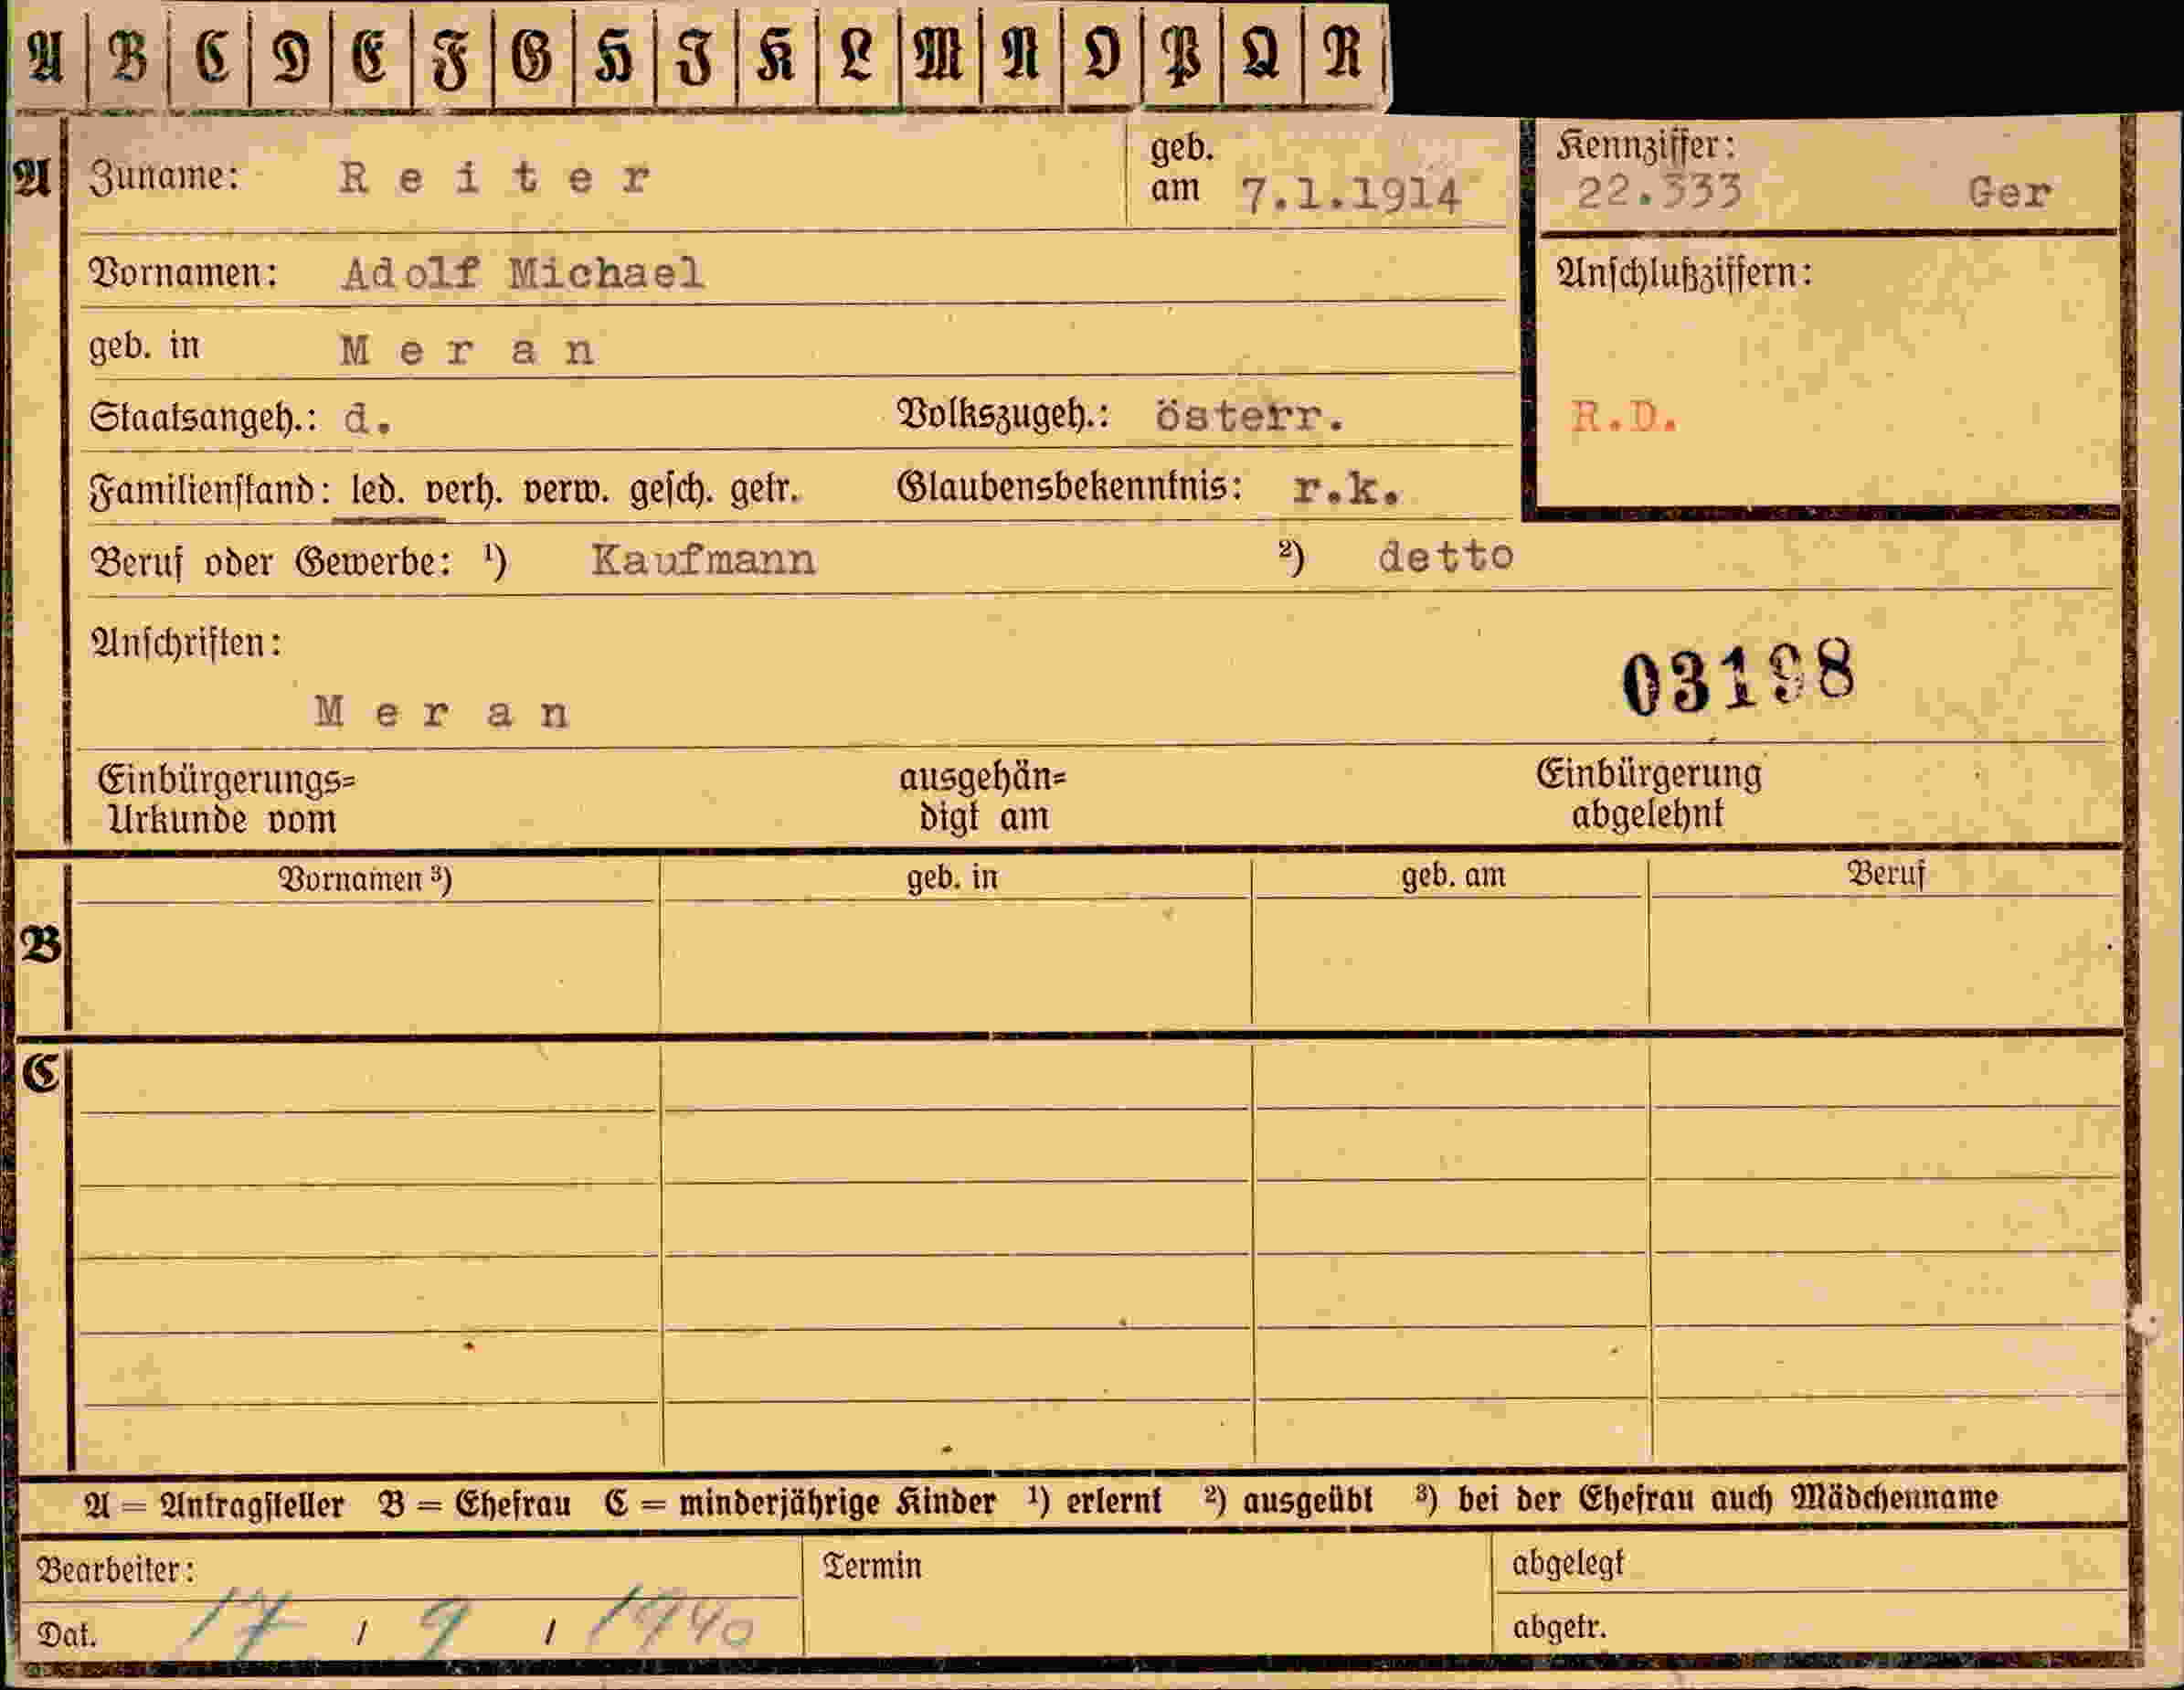 A B C D E F G H I K L M N O P Q R
A Zuname: Reiter geb. am 7.1.1914 Kennziffer: 22.333 Ger
Vornamen: Adolf Michael Anschlußziffern:
geb. in Meran
Staatsangeh.: d. Volkszugeh.: österr. R.D.
Familienstand: led. verh. verw. gesch. getr. Glaubensbekenntnis: r.k.
Beruf oder Gewerbe: ¹) Kaufmann ²) detto
Anschriften:
03198
Meran
Einbürgerungs= ausgehän= Einbürgerung
Urkunde vom digt am abgelehnt
Vornamen ³) geb. in geb. am Beruf
B
C
A = Antragsteller B = Ehefrau C = minderjährige Kinder ¹) erlernt ²) ausgeübt ³) bei der Ehefrau auch Mädchenname
Bearbeiter: Termin abgelegt
Dat. 17 / 9 / 1940 abgetr.